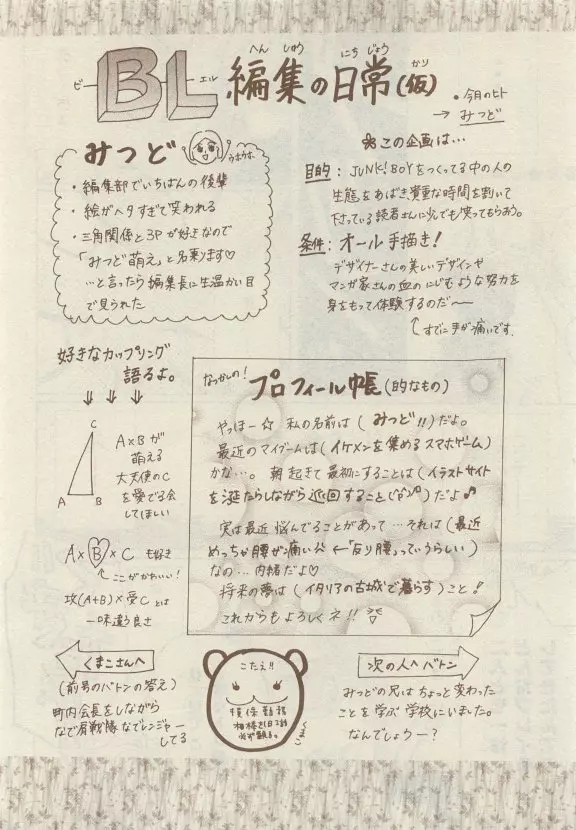 BL 編集の日常(仮)
ビー エル へんしゅう にちじょう かり
・今月のヒト
→ みつど
みつど
ウホウホ
・編集部でいちばんの後輩
・絵がヘタすぎて笑われる
・三角関係と3Pが好きなので
「みつど萌え」と名乗ります♡
…と言ったら編集長に生温かい目
で見られた
❀この企画は…
目的:JUNK!BOYをつくってる中の人の
生態をあばき、貴重な時間を割いて
下さっている読者さんに少しでも笑ってもらおう。
条件:オール手描き!
デザイナーさんの美しいデザインや
マンガ家さんの血のにじむような努力を
身をもって体験するのだ〜
↑すでに手が痛いです。
好きなカップリング
語るよ。
⇓ ⇓ ⇓
C
A B
A×Bが
萌える
大天使のC
を愛でる会
してほしい
A×B×C も好き
↑ここがかわいい!
攻(A+B)×受C とは
一味違う良さ
なつかしの!
プロフィール帳(的なもの)
やっほー☆ 私の名前は(みつど!!)だよ。
最近のマイブームは(イケメンを集めるスマホゲーム)
かな…。朝起きて最初にすることは(イラストサイト
を涎たらしながら巡回すること)だよ♪
実は最近悩んでることがあって…それは(最近
めっちゃ腰が痛い ←「反り腰」っていうらしい)
なの…内緒だよ♡
将来の夢は(イタリアの古城で暮らす)こと!
これからもよろしくネ!!
くまこさんへ
(前号のバトンの答え)
町内会長をしながら
なで肩戦隊なでレンジャー
してる
こたえ!!
くまこ
次の人へバトン
みつどの兄はちょっと変わった
ことを学ぶ学校にいました。
なんでしょうー?